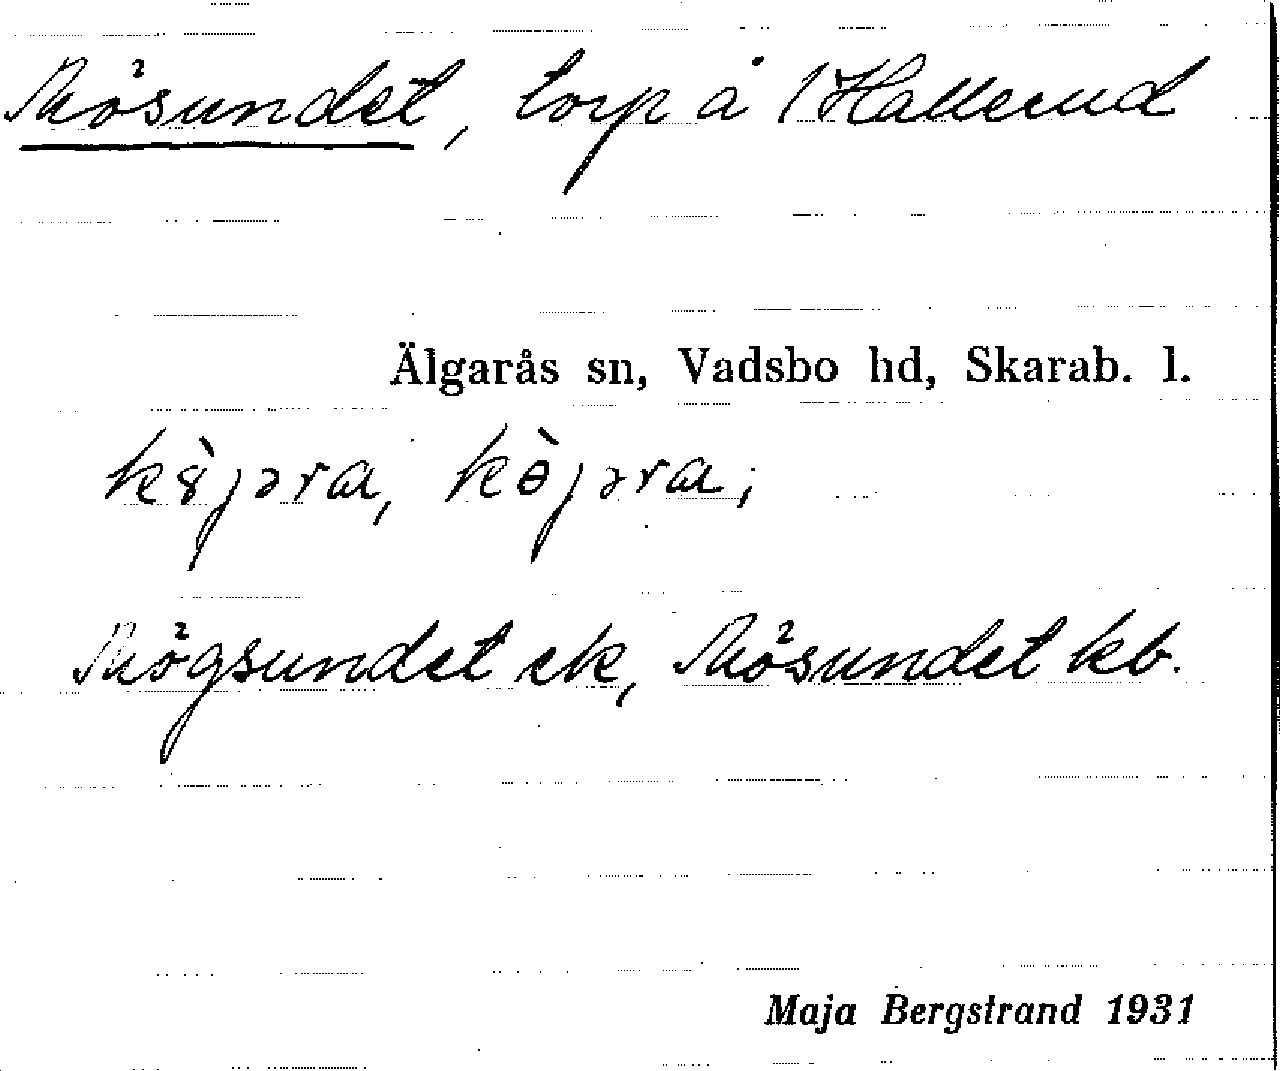 Mösundet, torp å /Hallerud
Älgarås sn, Vadsbo hd, Skarab. l.
k8̀jəra, kɵ̀jəra;
Mögsundet ek, Mösundet kb.
Maja Bergstrand 1931